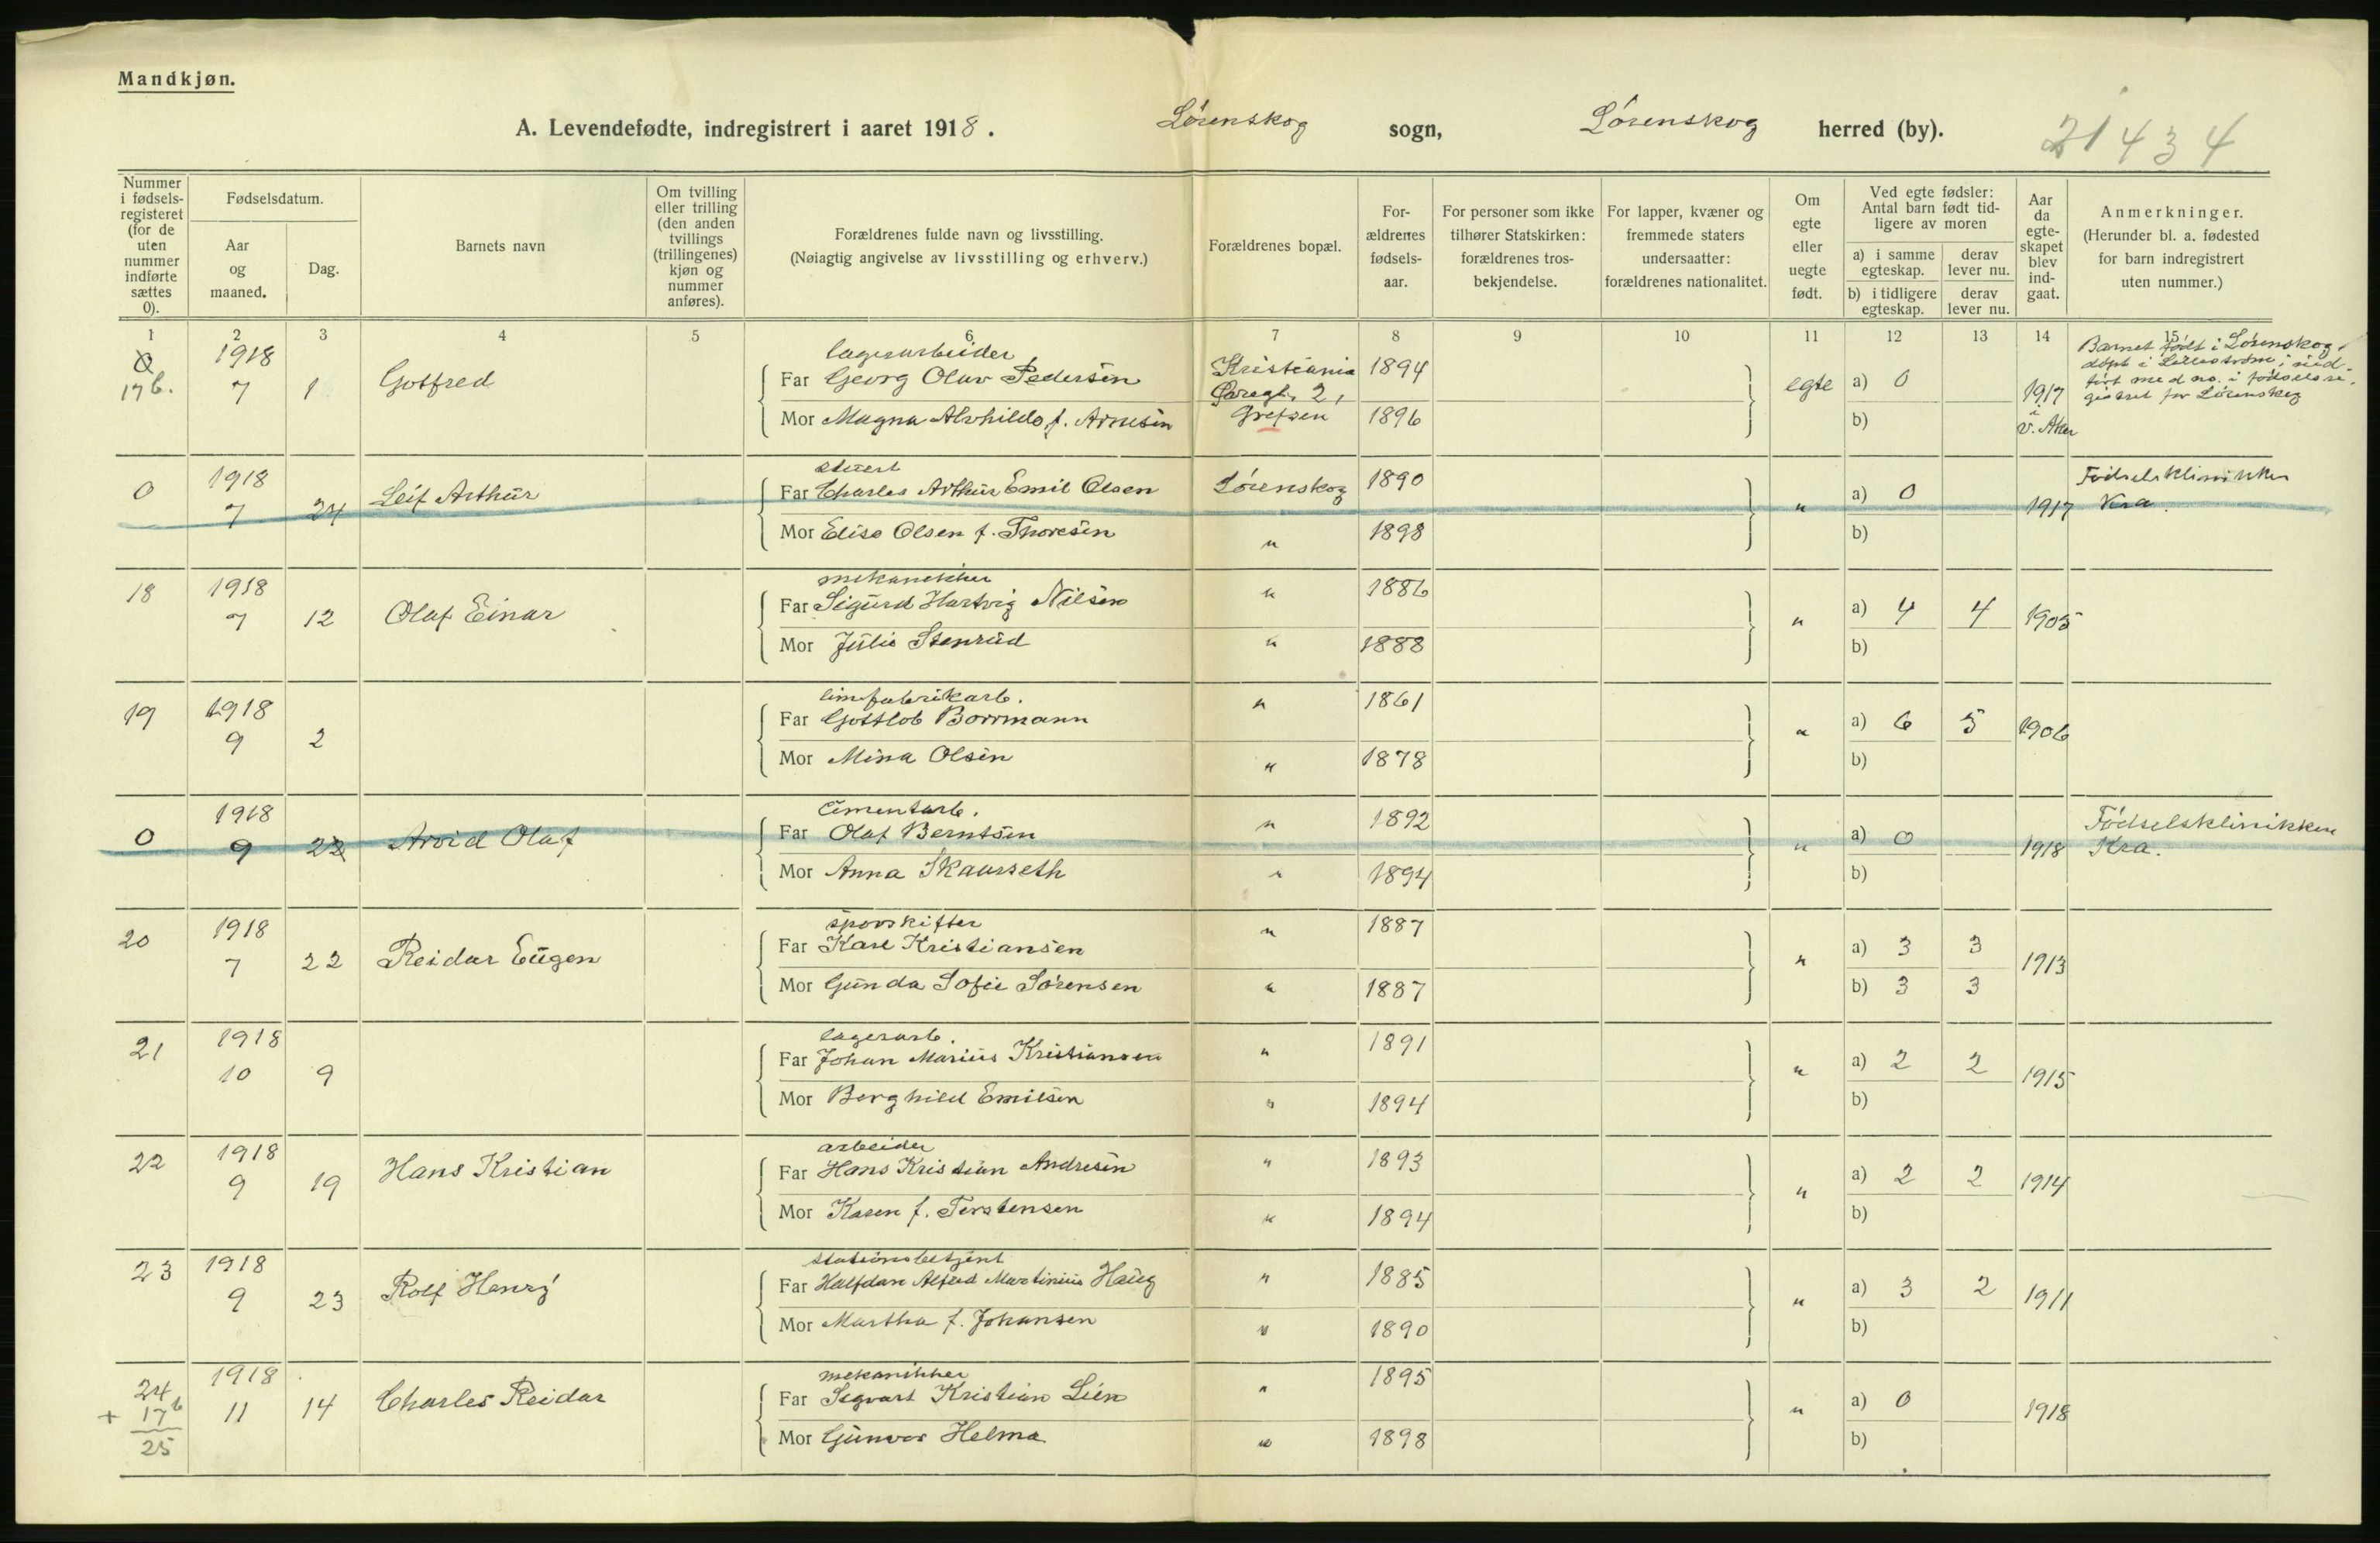 Mandkjøn.
A. Levendefødte, indregistrert i aaret 1918. Lørenskog sogn, Lørenskog herred (by). 21434
Nummer i fødsels-registeret (for de uten nummer indførte sættes 0).
Fødselsdatum.
Aar og maaned.
Dag.
Barnets navn
Om tvilling eller trilling (den anden tvillings (trillingenes) kjøn og nummer anføres).
Forældrenes fulde navn og livsstilling.
(Nøiagtig angivelse av livsstilling og erhverv.)
Forældrenes bopæl.
For-ældrenes fødsels-aar.
For personer som ikke tilhører Statskirken: forældrenes tros-bekjendelse.
For lapper, kvæner og fremmede staters undersaatter: forældrenes nationalitet.
Om egte eller uegte født.
Ved egte fødsler: Antal barn født tid-ligere av moren
a) i samme egteskap. derav lever nu.
b) i tidligere egteskap. derav lever nu.
Aar da egte-skapet blev ind-gaat.
Anmerkninger.
(Herunder bl. a. fødested for barn indregistrert uten nummer.)
1 2 3 4 5 6 7 8 9 10 11 12 13 14 15
0 1918 lagerarbeider Barnet født i Lørenskog,
17b. 7 1 Gotfred Far Georg Olav Pedersen Kristiania 1894 egte a) 0 1917 døpt i Lillestrøm, ind-
2, ført med no. i fødselsre-
Mor Magna Alvhilde f. Arnesen Grefsen 1896 b) i V. Aker gistret for Lørenskog
0 1918 stuert
7 24 Leif Arthur Far Charles Arthur Emil Olsen Lørenskog 1890 " a) 0 1917 Fødselsklinikken Kra.
Mor Elise Olsen f. Thoresen " 1898 b)
18 1918 mekaniker
7 12 Olaf Einar Far Sigurd Hartvig Nilsen " 1886 " a) 4 4 1905
Mor Julie Stenrud " 1888 b)
19 1918 limfabrikarb.
9 2 Far Gottlob Borrmann " 1861 " a) 6 5 1906
Mor Mina Olsen " 1878 b)
0 1918 Cementarb.
9 22 Arvid Olaf Far Olaf Berntsen " 1892 " a) 0 1918 Fødselsklinikken Kra.
Mor Anna Skaarseth " 1894 b)
20 1918 sporskifter
7 22 Reidar Eugen Far Karl Kristiansen " 1887 " a) 3 3 1913
Mor Gunda Sofie Sørensen " 1887 b) 3 3
21 1918 lagerarb.
10 9 Far Johan Marius Kristiansen " 1891 " a) 2 2 1915
Mor Borghild Emilsen " 1894 b)
22 1918 arbeider
9 19 Hans Kristian Far Hans Kristian Andresen " 1893 " a) 2 2 1914
Mor Karen f. Torstensen " 1894 b)
23 1918 stationsbetjent
9 23 Rolf Henry Far Halfdan Alfred Martinius Haug " 1885 " a) 3 2 1911
Mor Martha f. Johansen " 1890 b)
24 1918 mekanikker
+ 17b 11 14 Charles Reidar Far Segvart Kristian Lien " 1895 " a) 0 1918
25 Mor Gunvor Helma " 1898 b)